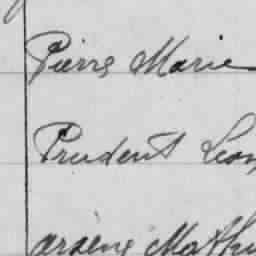 Pierre Marie
Prudent Leon
arsene Mathu